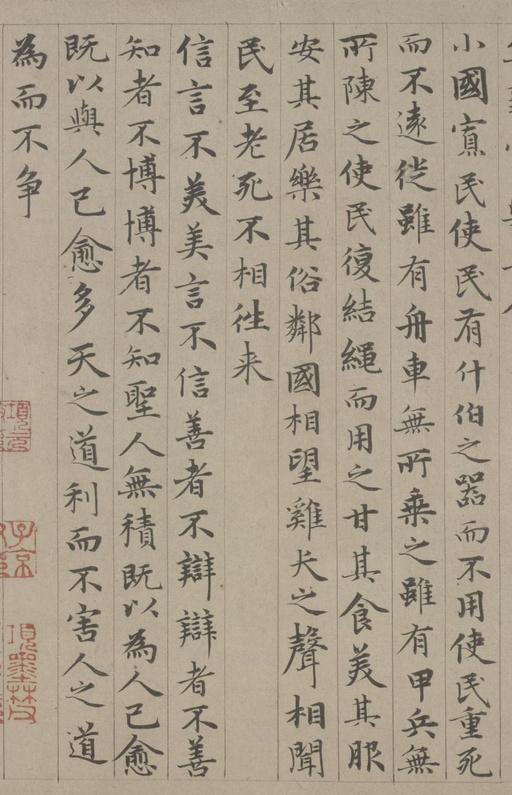 小國寡民使民有什伯之器而不用使民重死
而不遠徙雖有舟車無所乗之雖有甲兵無
所陳之使民復結繩而用之甘其食美其服
安其居樂其俗鄰國相望雞犬之聲相聞
民至老死不相往来
信言不美美言不信善者不辯辯者不善
知者不博博者不知聖人無積既以為人己愈
既以與人己愈多天之道利而不害人之道
為而不争
子京
項墨林